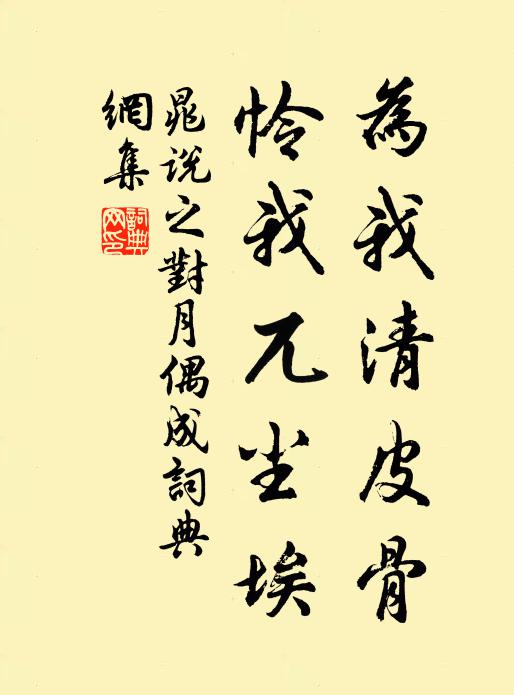 為我清皮骨
怜我兀尘埃
晁说之對月偶成詞典
網集
詞典
网印